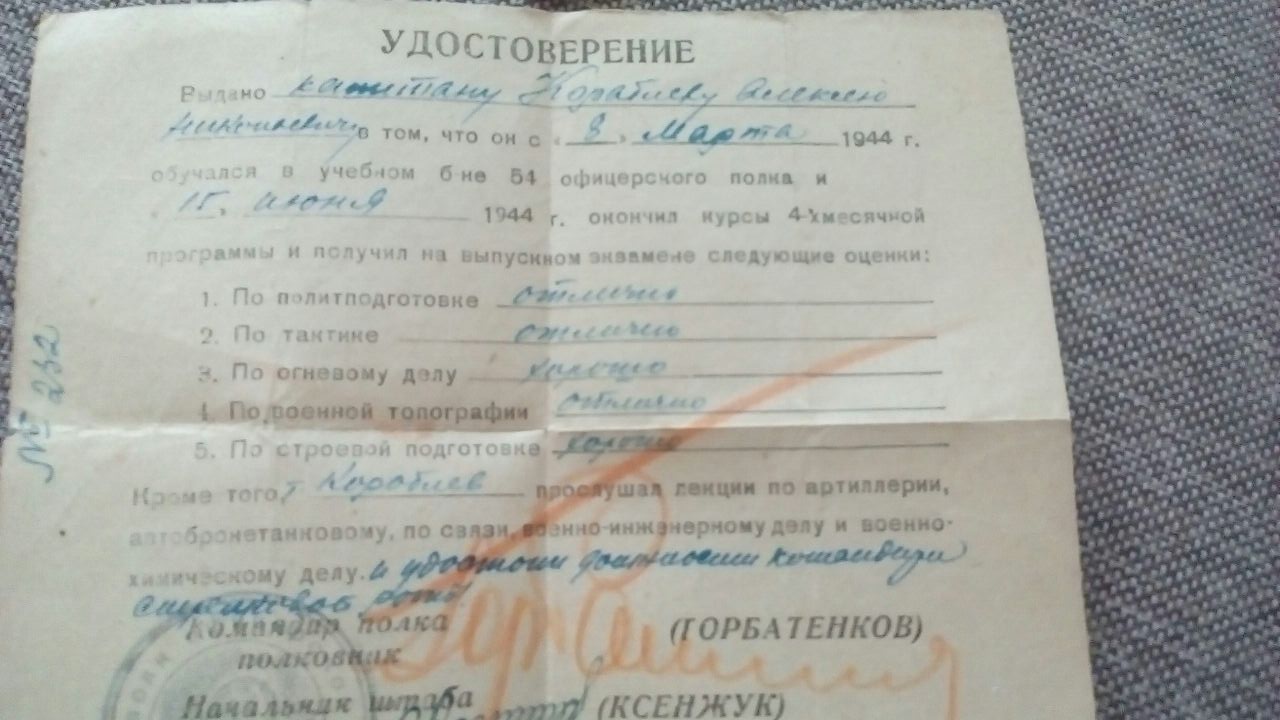 УДОСТОВЕРЕНИЕ
Выдано капитану Кораблеву Алексею
Николаевичу в том, что он с „8" Марта 1944 г.
обучался в учебном б-не 54 офицерского полка и
„15" июня 1944 г. окончил курсы 4-хмесячной
программы и получил на выпускном экзамене следующие оценки:
1. По политподготовке отлично
2. По тактике отлично
3. По огневому делу хорошо
4. По военной топографии отлично
5. По строевой подготовке хорошо
Кроме того, т. Кораблев прослушал лекции по артиллерии,
автобронетанковому, по связи, военно-инженерному делу и военно-
химическому делу. и удостоен должности командира
стрелковой роты
Командир полка
полковник (ГОРБАТЕНКОВ)
Начальник штаба (КСЕНЖУК)
№ 232